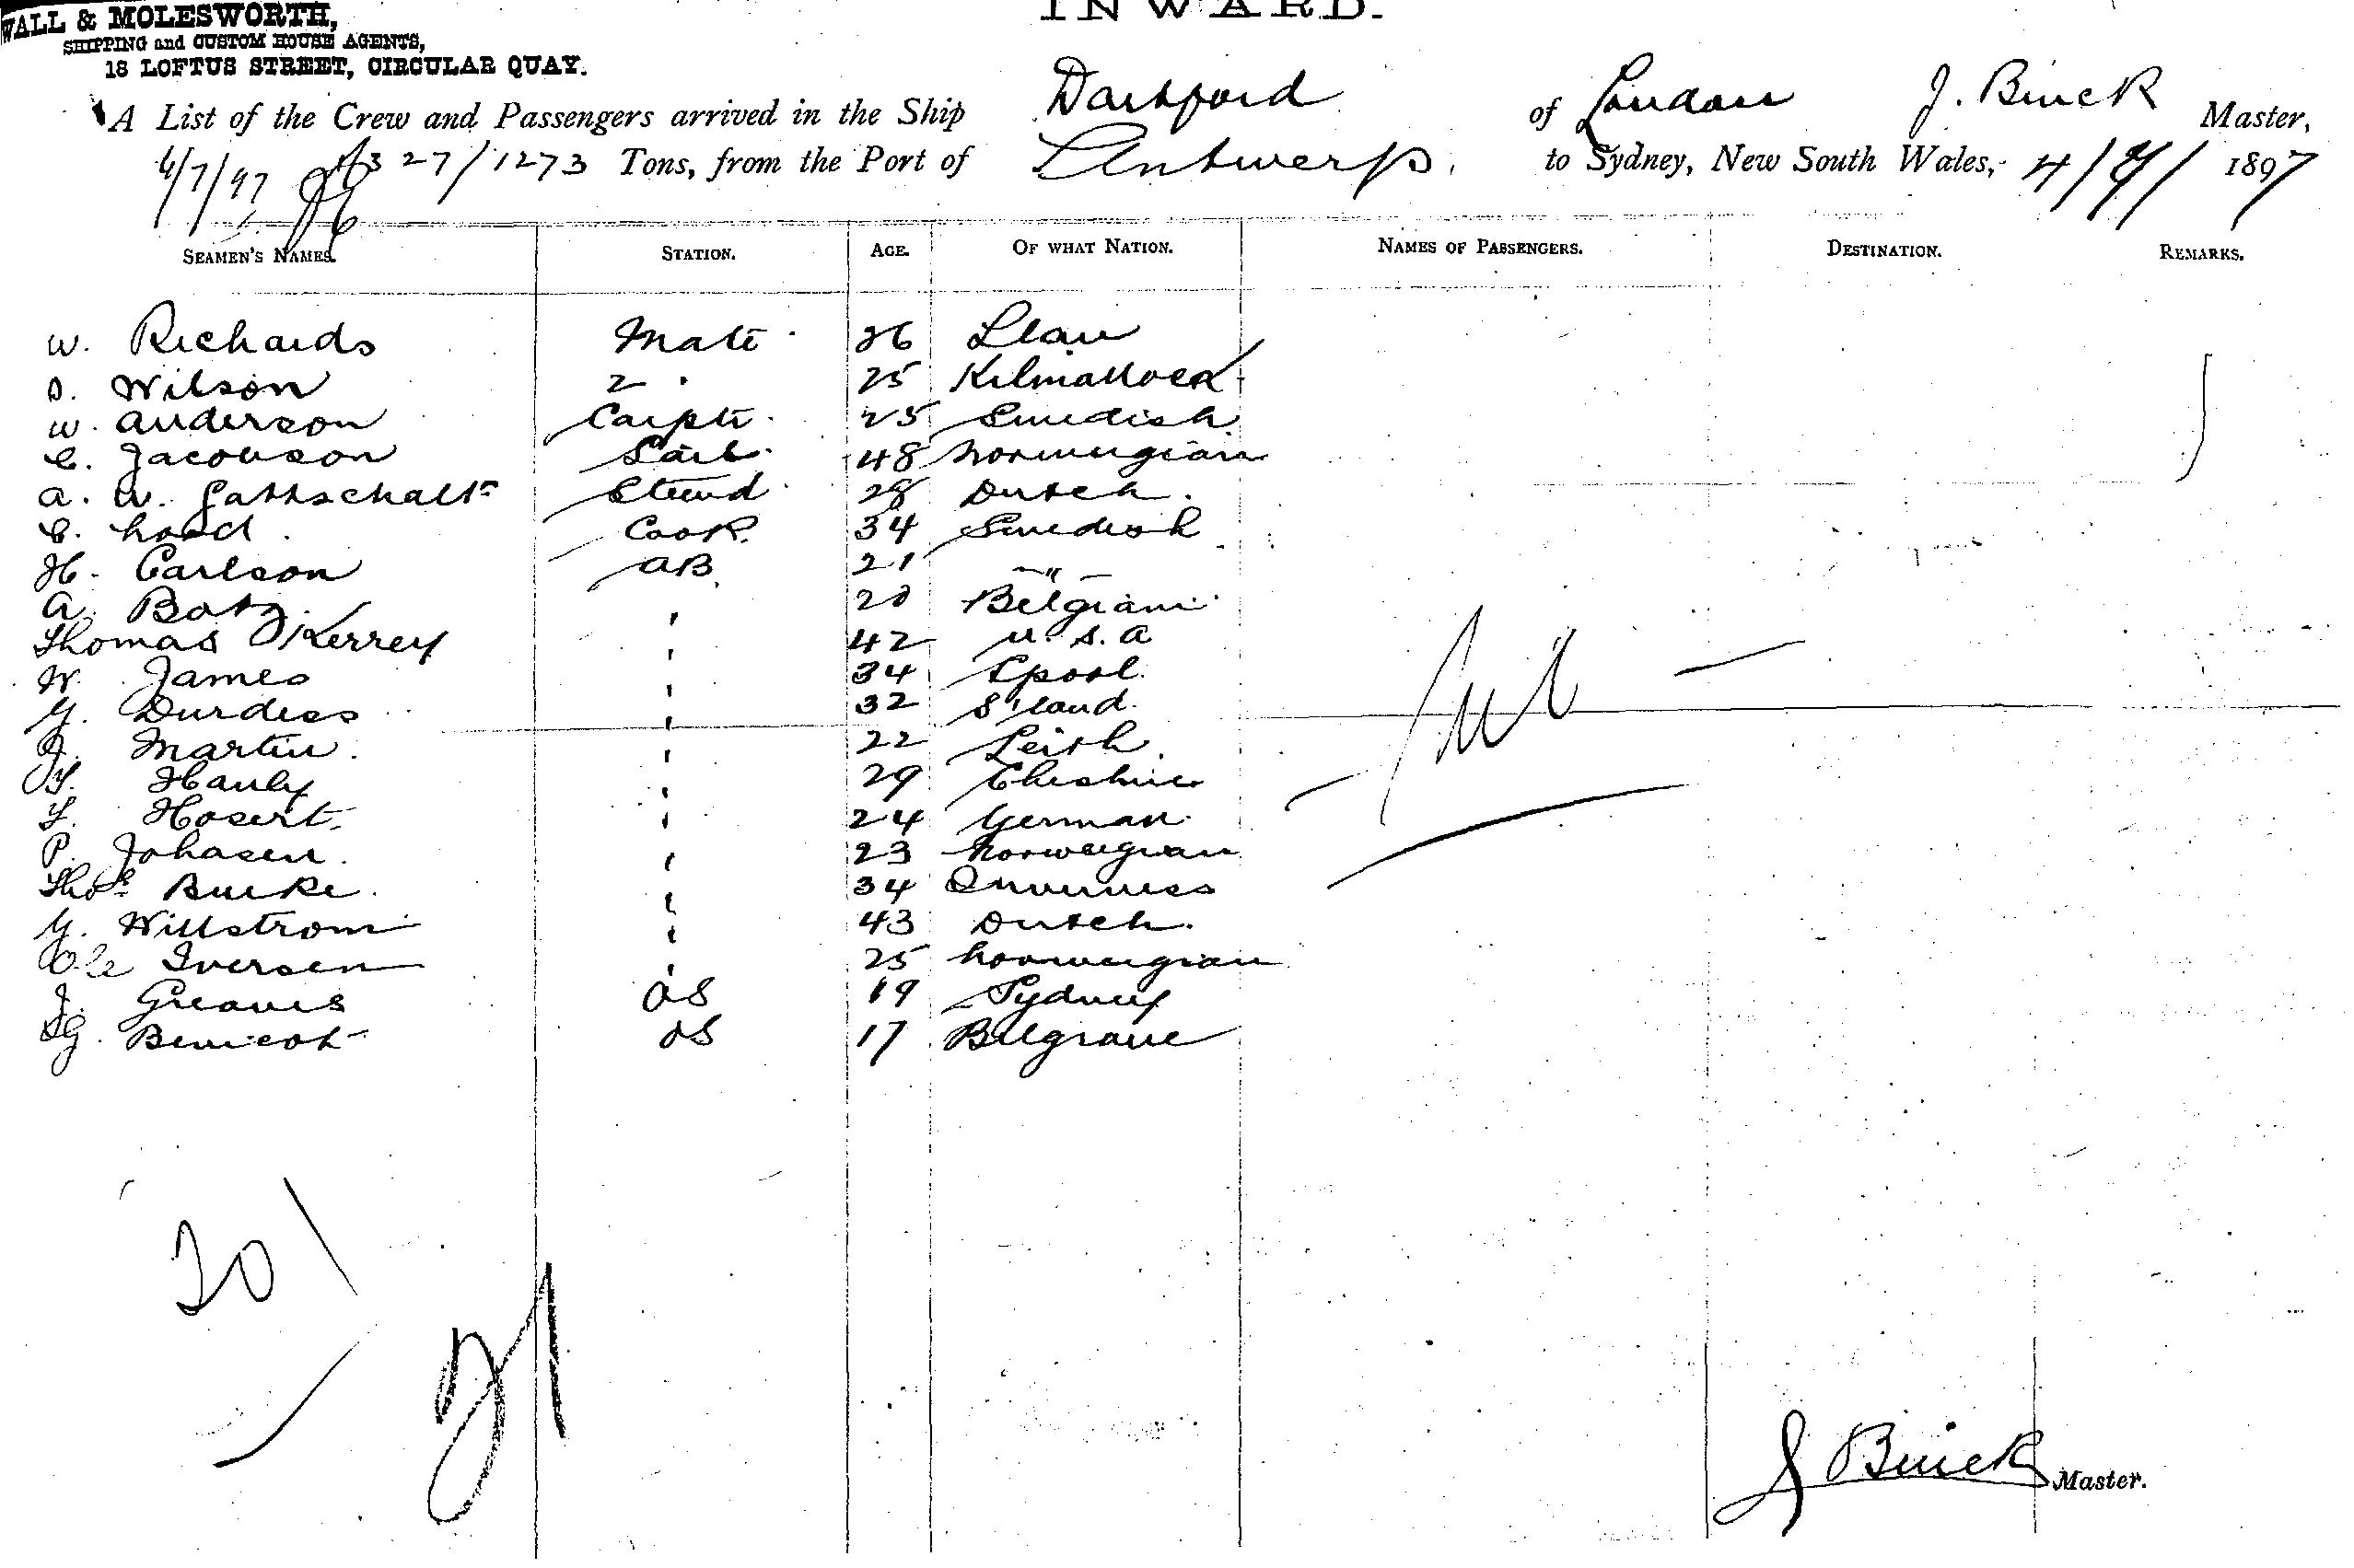 WALL & MOLESWORTH,
SHIPPING and CUSTOM HOUSE AGENTS,
18 LOFTUS STREET, CIRCULAR QUAY.
INWARD.
A List of the Crew and Passengers arrived in the Ship Dartford of London J. Buick Master,
6/7/97 1327/1273 Tons, from the Port of Antwerp. to Sydney, New South Wales, 4/7/1897
SEAMEN'S NAMES. STATION. AGE. OF WHAT NATION. NAMES OF PASSENGERS. DESTINATION. REMARKS.
W. Richards Mate 26
D. Wilson 2 25
W. Anderson Carptr 25 Swedish
C. Jacobson Sail 48 Norwegian
A. W. Gottschalk Stewd 28 Dutch.
C. Cook 34 Swedish
H. Carlson AB 21 — " —
A. Botz ' 20 Belgian
Thomas Kerrey ' 42 U.S.A
W. James ' 34 Lpool.
G. Durdess ' 32 S'land.
J. Martin ' 22 Leith.
Hanly ' 29 Cheshire
Hosert ' 24 German
P. Johasen ' 23 Norweigian
Thos Burke ' 34 Inverness
G. Willstrom ' 43 Dutch.
Ole Iversen ' 25 Norweigian
J. Greaves OS 19 Sydney
Benicot OS 17 Belgrave
20
J Buick Master.